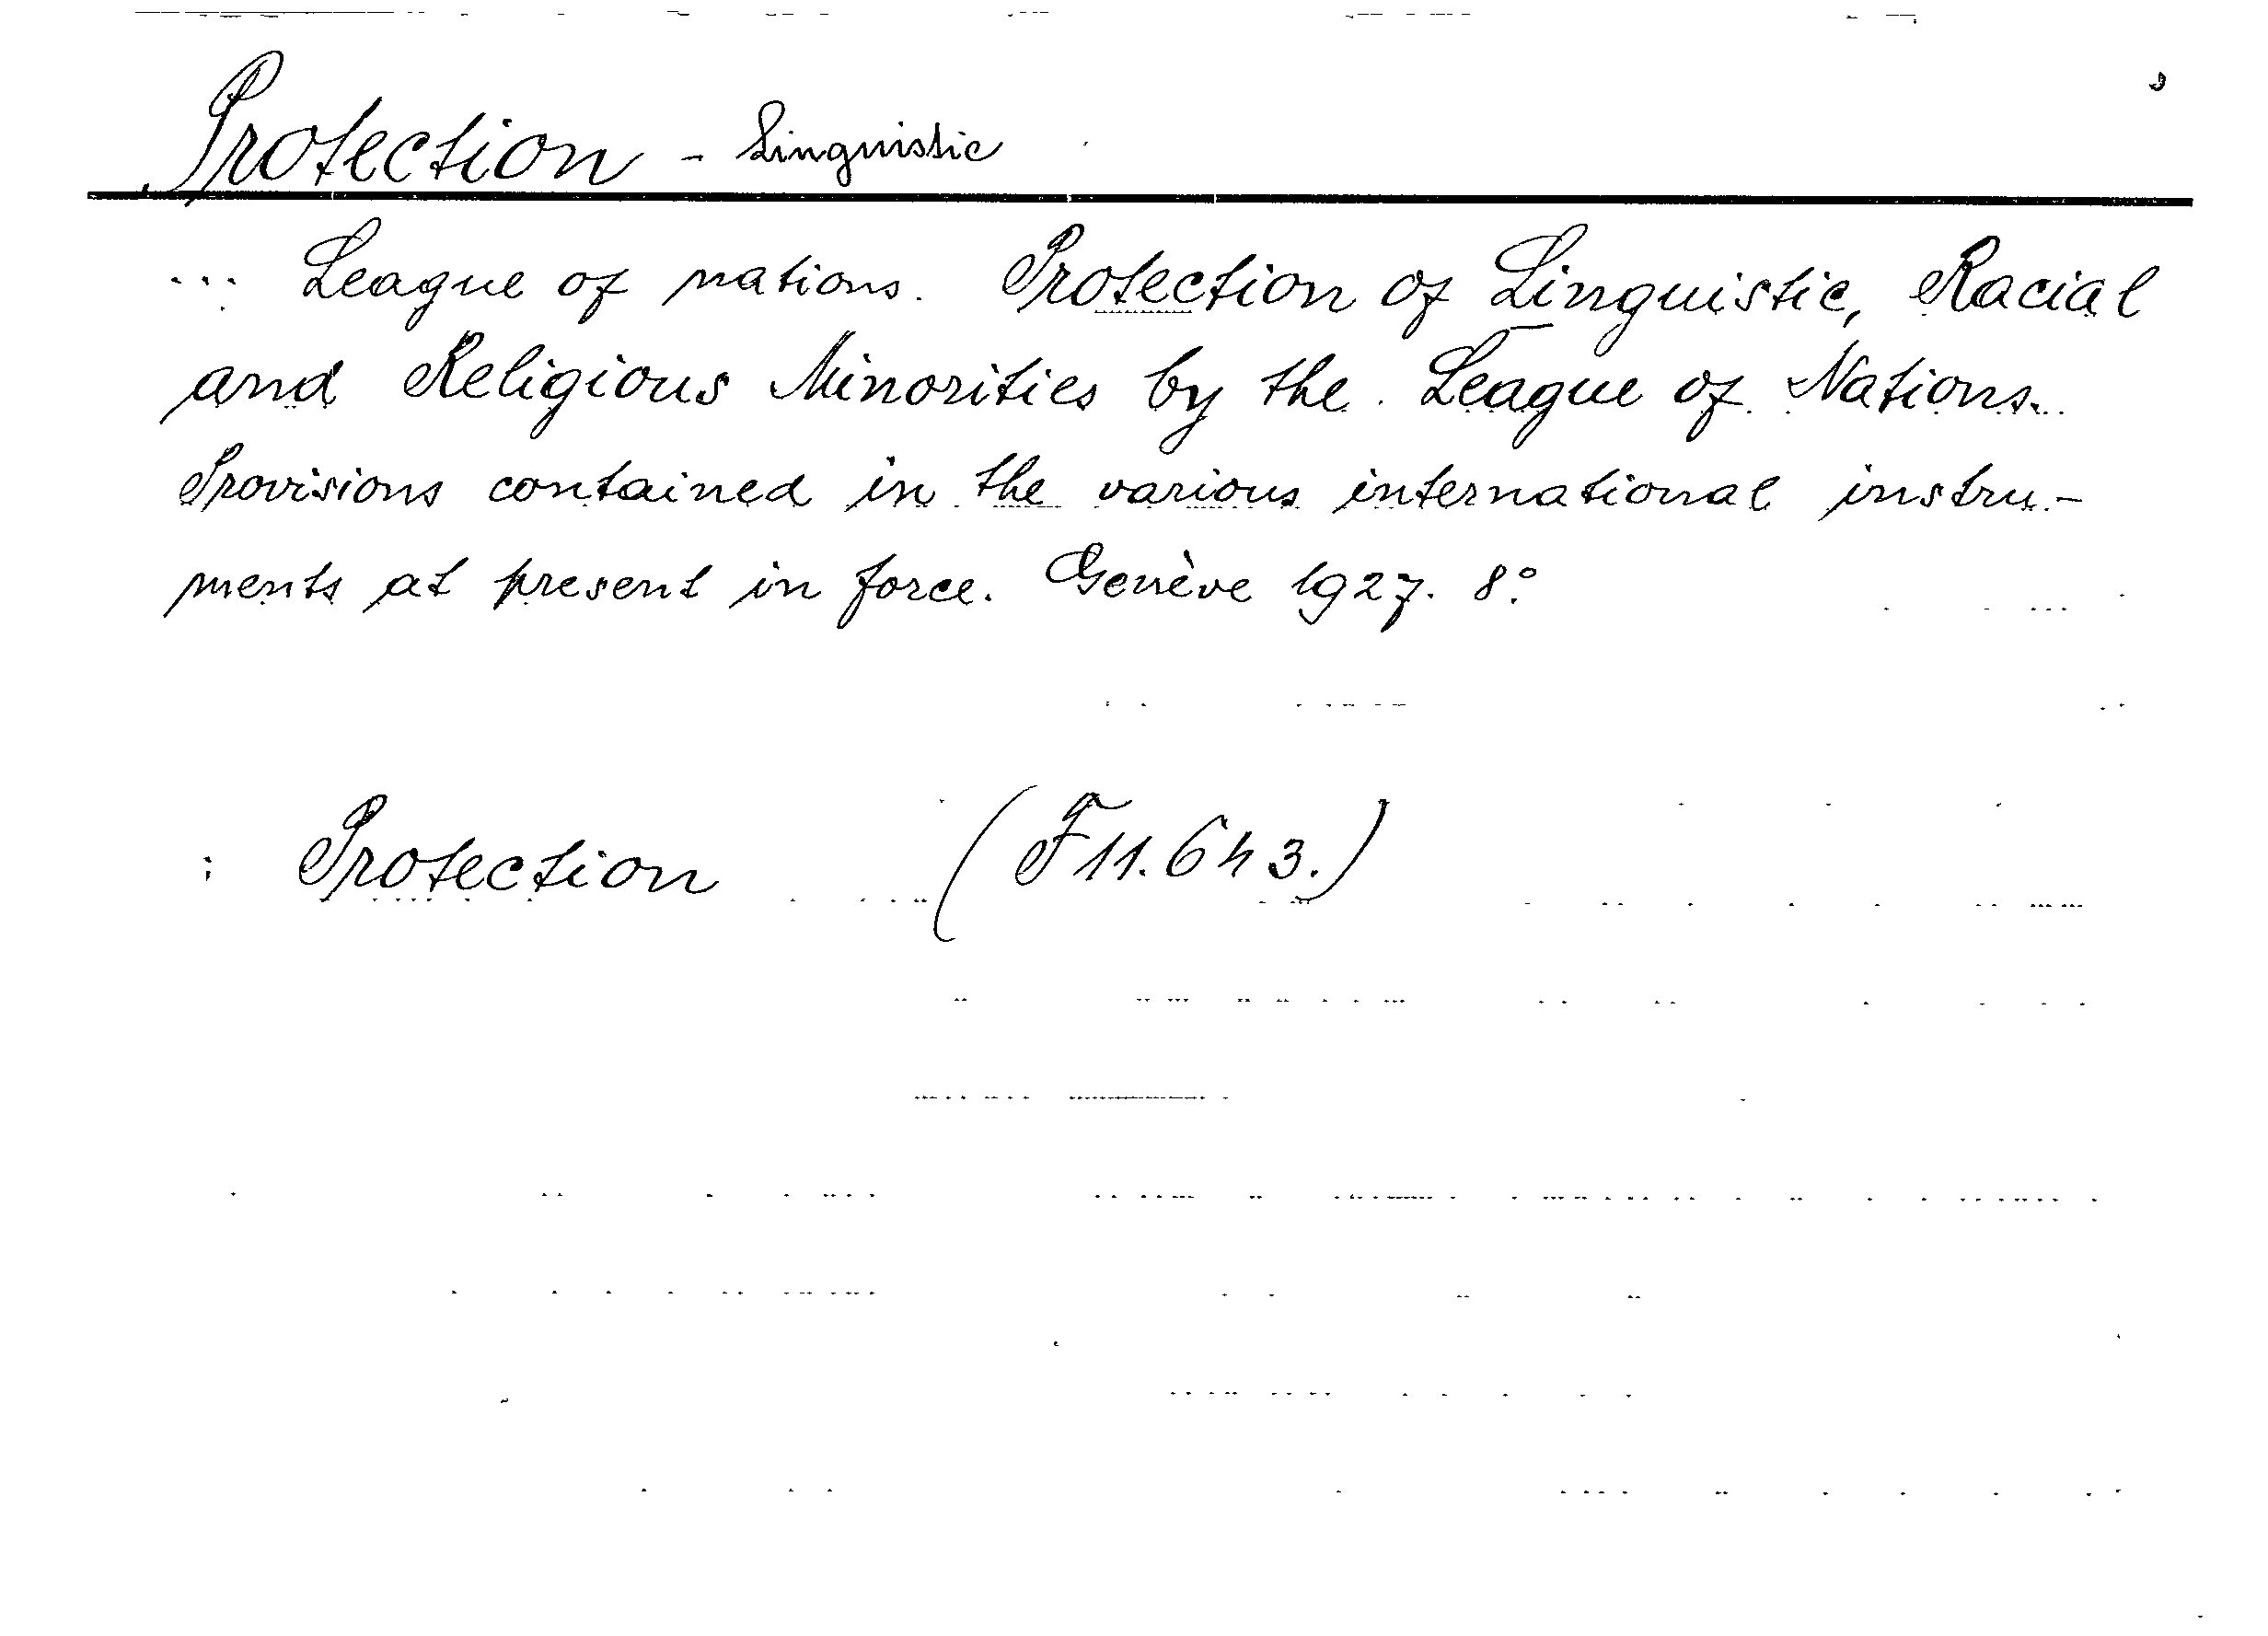 Protection - Linguistic
... League of nations. Protection of Linguistic, Racial
and Religious Minorities by the League of Nations.
Provisions contained in the various international instru-
ments at present in force. Genève 1927. 8°
: Protection (F 11.643.)